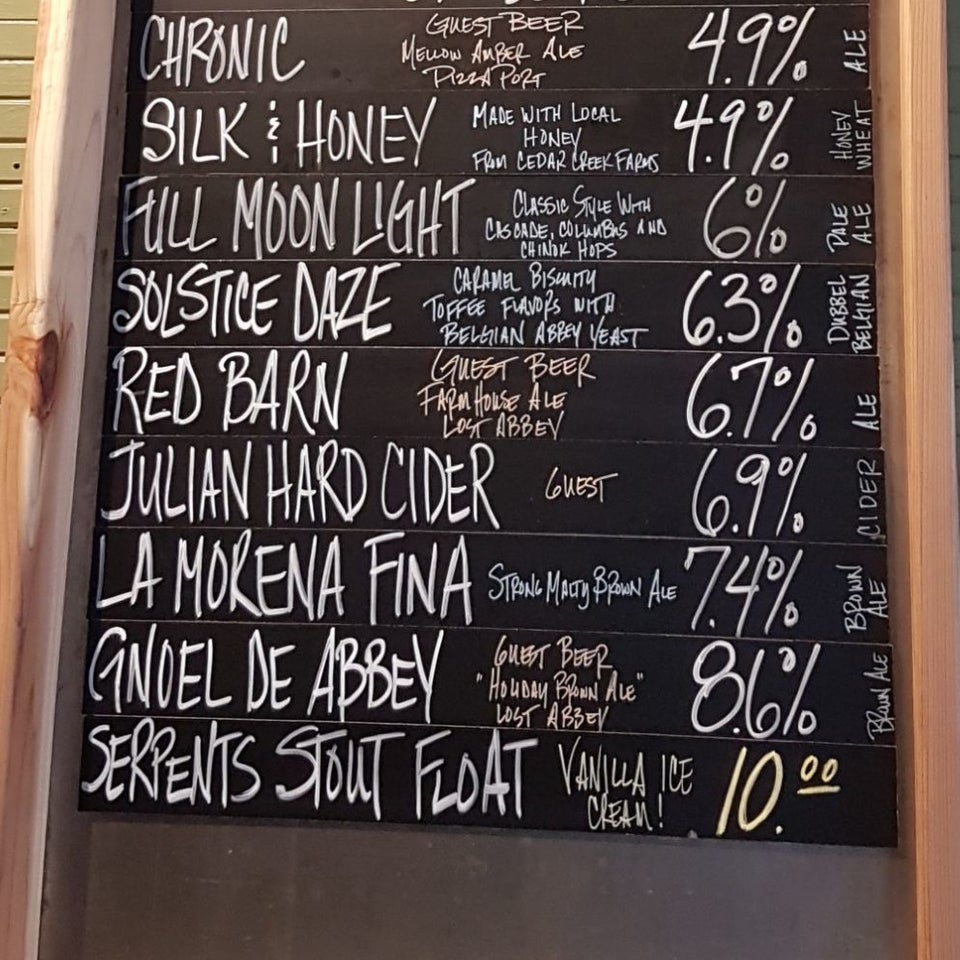 CHRONIC
GUEST BEER
MELLOW AMBER ALE
PIZZA PORT
4.9%
ALE
SILK & HONEY
MADE WITH LOCAL
HONEY
FROM CEDAR CREEK FARMS
4.9%
HONEY
WHEAT
FULL MOON LIGHT
CLASSIC STYLE WITH
CASCADE, COLUMBUS AND
CHINOK HOPS
6%
PALE
ALE
SOLSTICE DAZE
CARAMEL BISCUITY
TOFFEE FLAVORS WITH
BELGIAN ABBEY YEAST
6.3%
DUBBEL
BELGIAN
RED BARN
GUEST BEER
FARMHOUSE ALE
LOST ABBEY
6.7%
ALE
JULIAN HARD CIDER
GUEST
6.9%
CIDER
LA MORENA FINA
STRONG MALTY BROWN ALE
7.4%
BROWN
ALE
GNOEL DE ABBEY
GUEST BEER
"HOLIDAY BROWN ALE"
LOST ABBEY
8.6%
BROWN ALE
SERPENTS STOUT FLOAT
VANILLA ICE
CREAM!
10.00